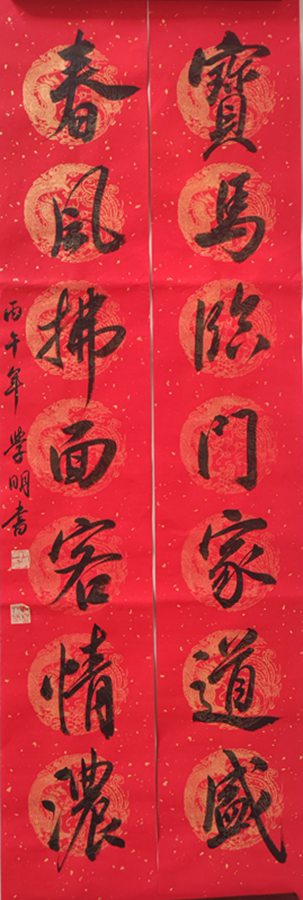 寶馬臨门家道盛
春风拂面客情濃
丙午年学明書